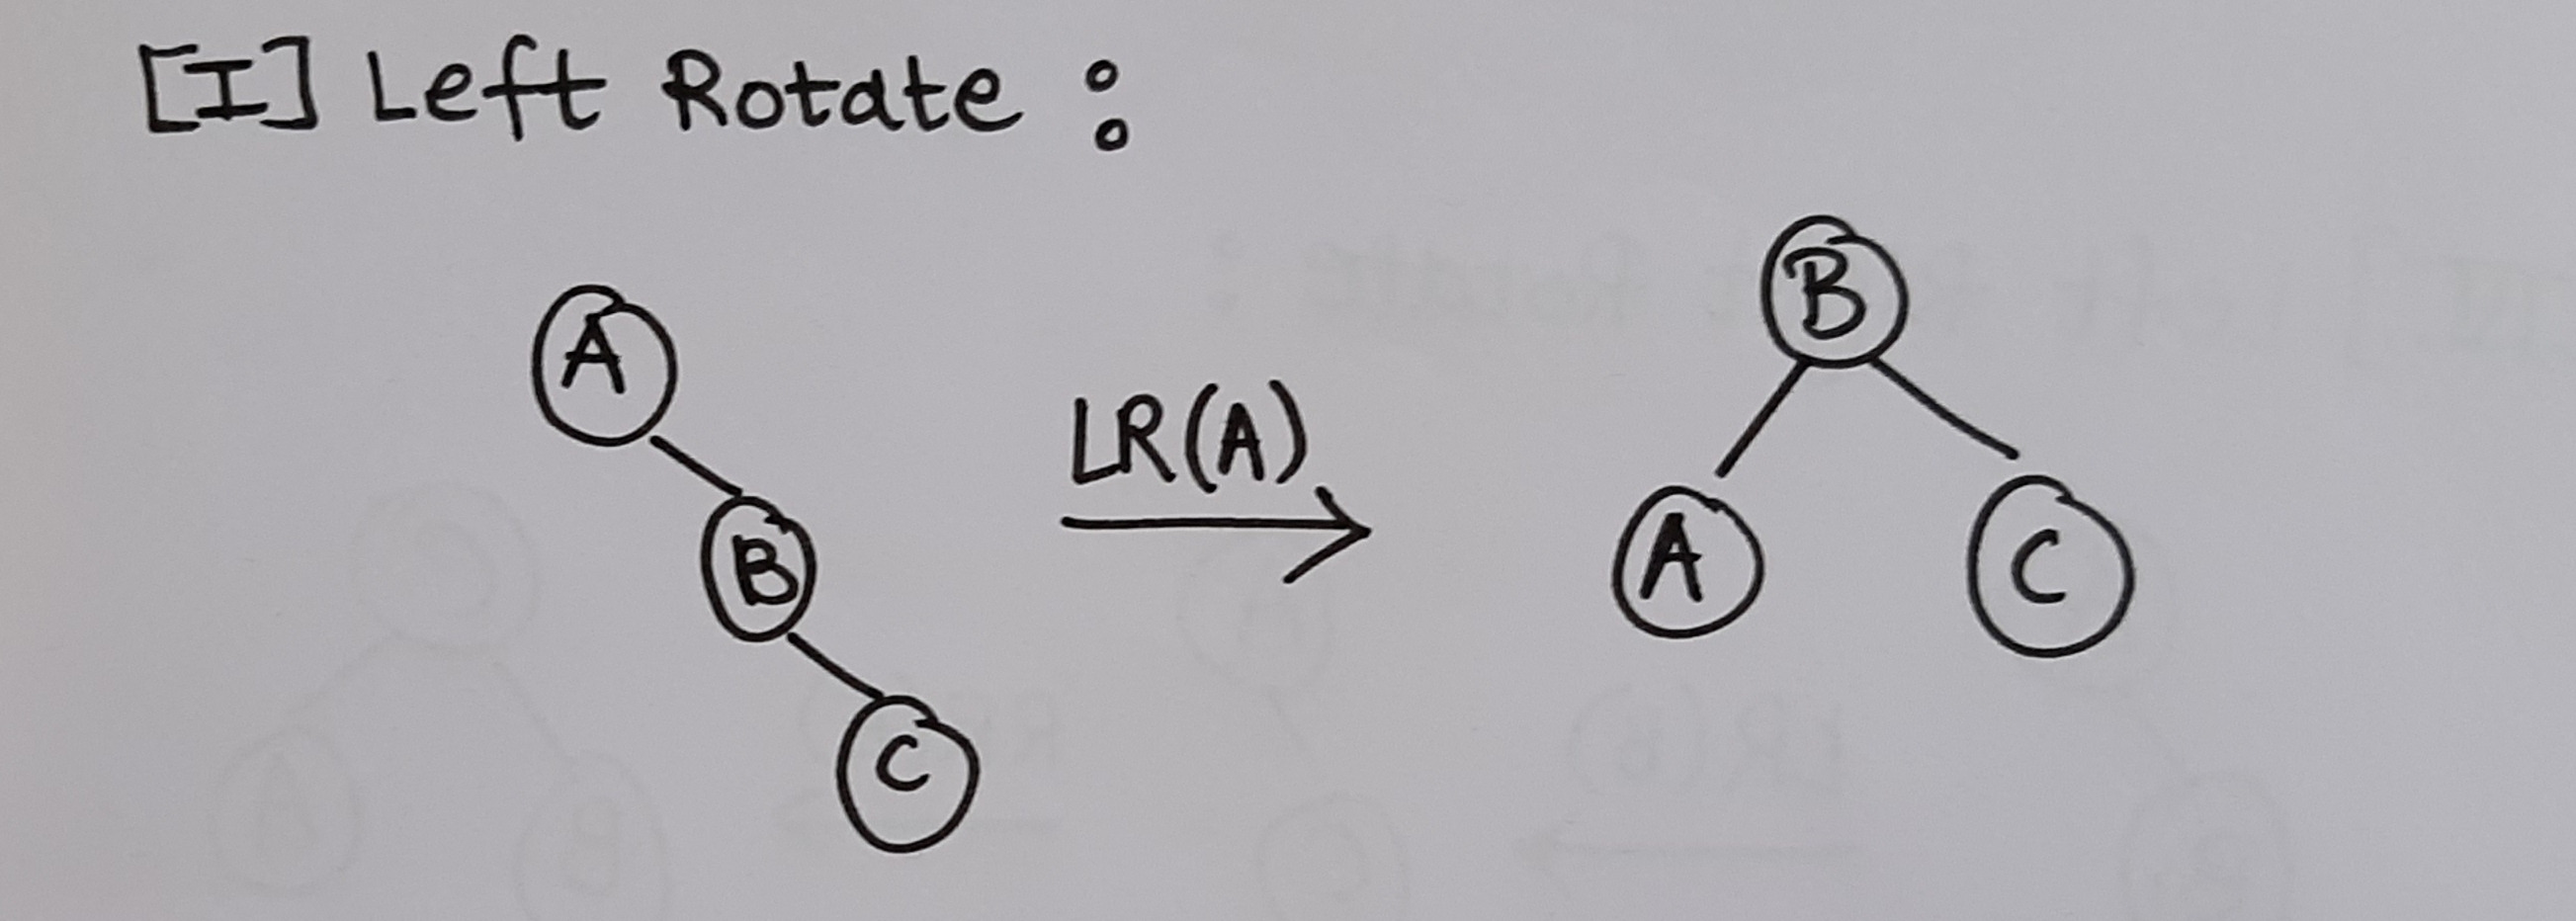 [I] Left Rotate :
B
A
LR(A)
B
A
C
C